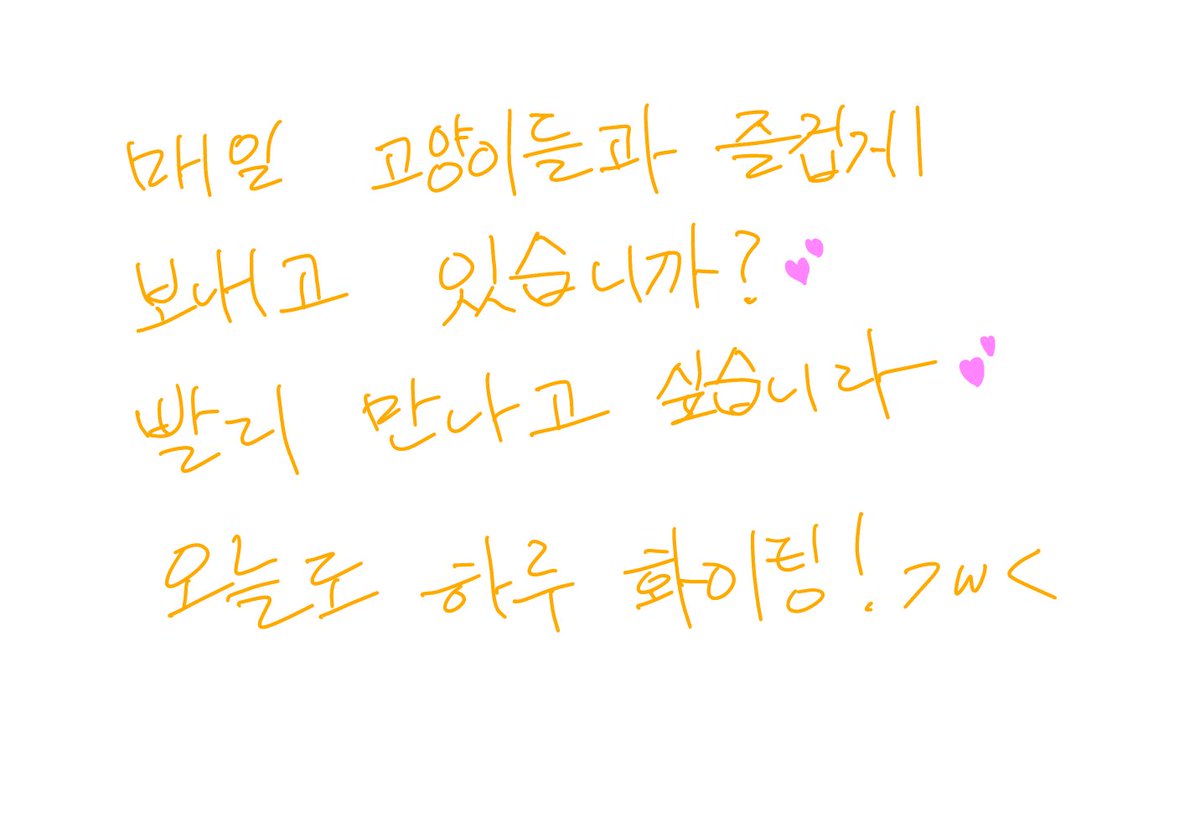 매일 고양이들과 즐겁게
보내고 있습니까?💕
빨리 만나고 싶습니다💕
오늘도 하루 화이팅! >w<